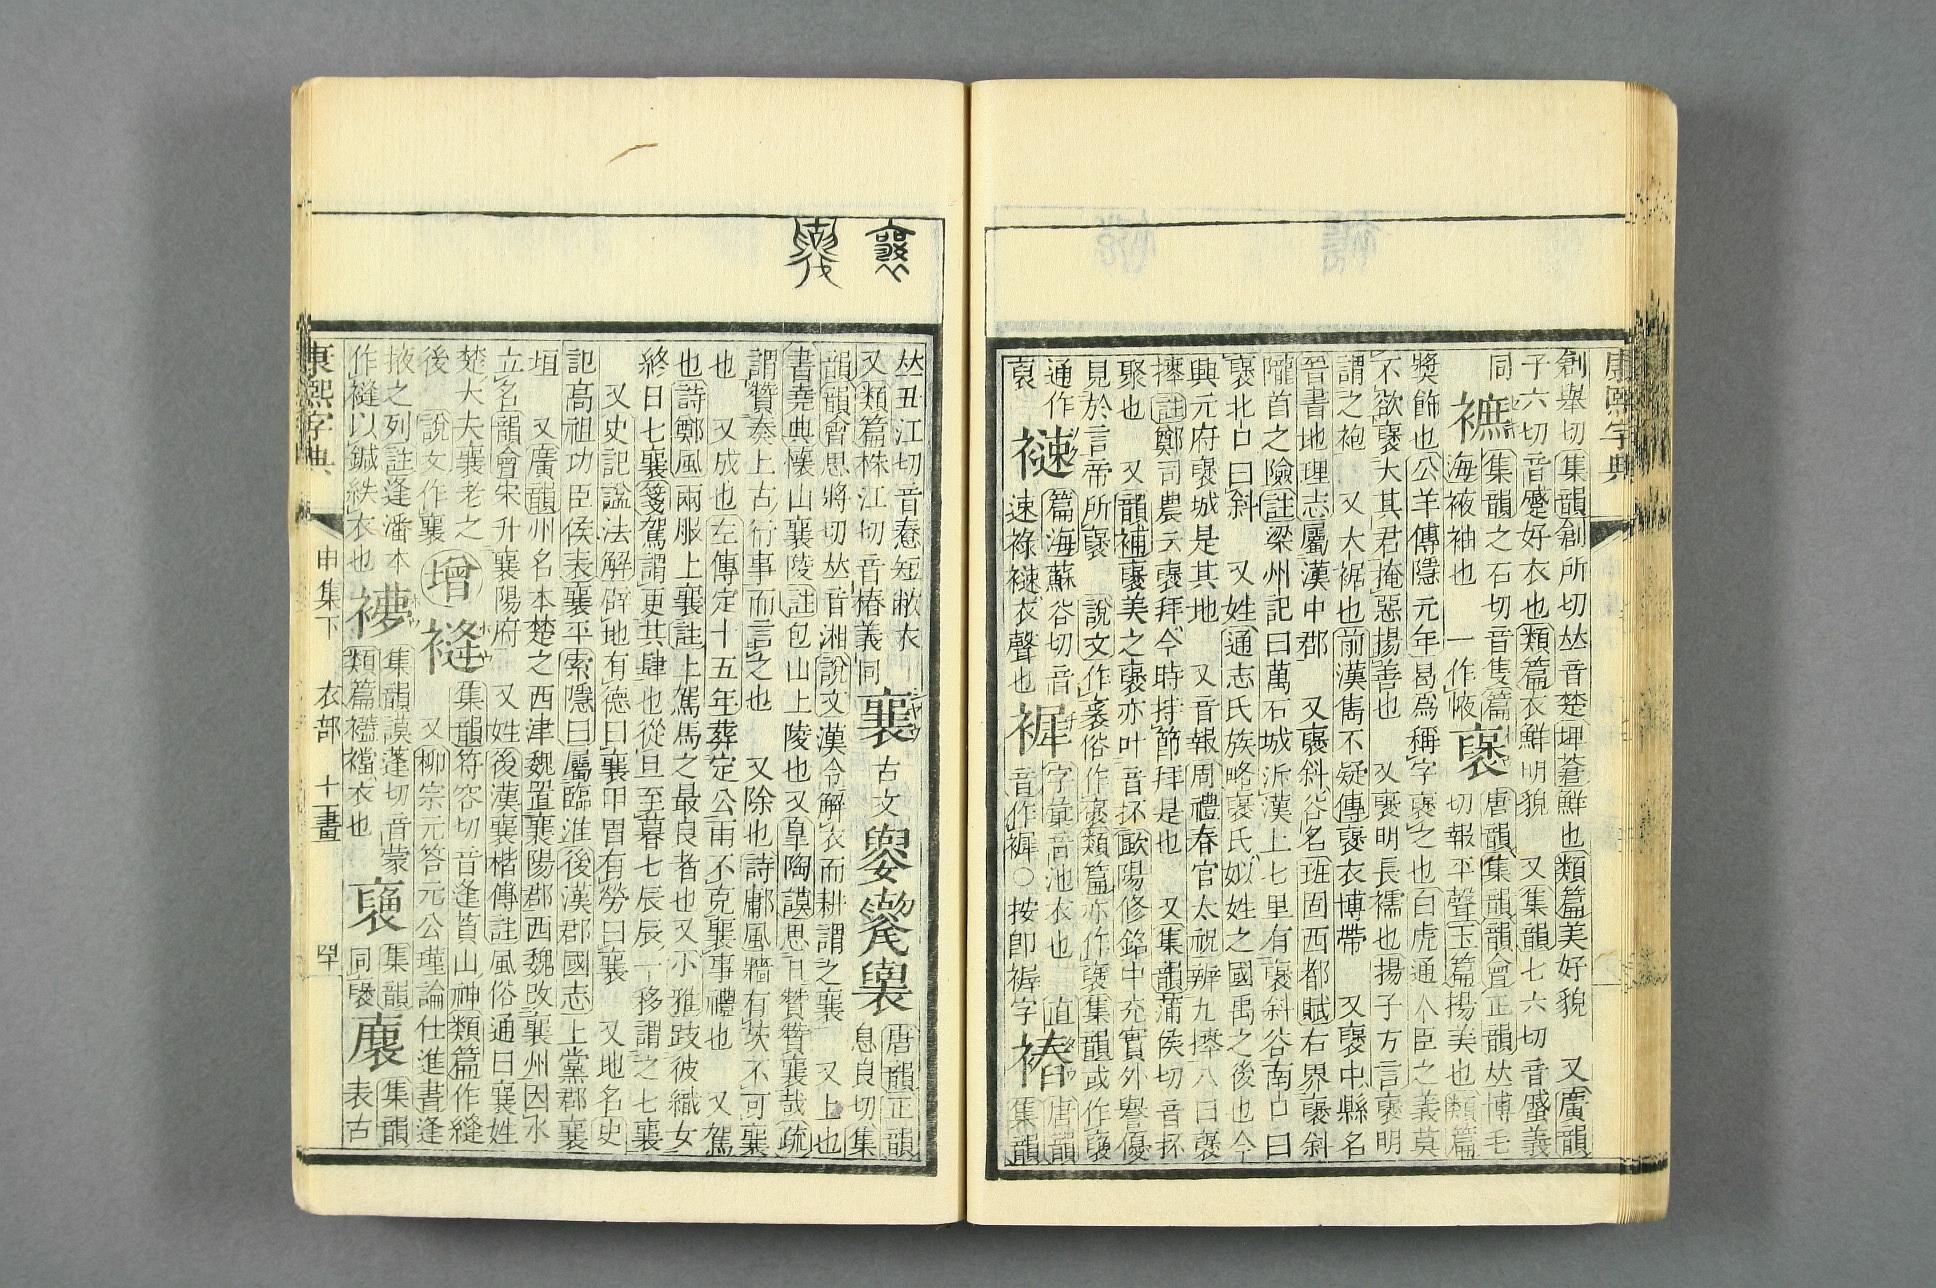 康熙字典
創舉切集韻創所切𠀤音楚埤蒼鮮也類篇美好貌 又廣韻
子六切音蹙好衣也類篇衣鮮明貌 又集韻七六切音蹙義
同 襪 集韻之石切音隻篇海袚袖也 一作𢂿 襃 唐韻集韻韻會正韻𠀤博毛切報平聲玉篇揚美也類篇
獎飾也公羊傳隱元年曷爲稱字襃之也白虎通人臣之義莫
不欲襃大其君掩惡揚善也 又襃明長襦也揚子方言襃明
謂之袍 又大裾也前漢雋不疑傳襃衣博帶 又襃中縣名
晉書地理志屬漢中郡 又襃斜谷名班固西都賦右界襃斜
隴首之險註梁州記曰萬石城泝漢上七里有襃斜谷南口曰
襃北口曰斜 又姓通志氏族略襃氏姒姓之國禹之後也今
興元府襃城是其地 又音報周禮春官太祝辨九𢷎八曰襃
𢷎註鄭司農云襃拜今時持節拜是也 又集韻蒲侯切音抔
聚也 又韻補襃美之襃亦叶音抔歐陽修銘中充實外譽優
見於言帝所襃 說文作襃俗作褒類篇亦作襃集韻或作裒
通作裒 䙔 篇海蘇谷切音速䘵䙔衣聲也 褷 字彙音池衣也 直音作褲○按卽褫字 䙁 唐韻集韻
𠀤丑江切音惷短敝衣
又類篇株江切音樁義同 襄 古文 𤕦𧞻㐮 唐韻正韻息良切集
韻韻會思將切𠀤音湘說文漢令解衣而耕謂之襄 又上也
書堯典懷山襄陵註包山上陵也又臯陶謨思曰贊贊襄哉疏
謂贊奏上古行事而言之也 又除也詩鄘風牆有茨不可襄
也 又成也左傳定十五年葬定公雨不克襄事禮也 又駕
也詩鄭風兩服上襄註上駕馬之最良者也又小雅跂彼織女
終日七襄箋駕謂更其肆也從旦至暮七辰辰一移謂之七襄
又史記諡法解辟地有德曰襄甲冑有勞曰襄 又地名史
記高祖功臣侯表襄平索隱曰屬臨淮後漢郡國志上黨郡襄
垣 又廣韻州名本楚之西津魏置襄陽郡西魏攺襄州因水
立名韻會宋升襄陽府 又姓後漢襄楷傳註風俗通曰襄姓
楚大夫襄老之後 說文作襄 增 縫 集韻符容切音逢 山神類篇作縫
又柳宗元答元公瑾論仕進書逢掖之列註逢潘本
作縫以鍼紩衣也 䙩 集韻謨蓬切音蒙類篇襤襠衣也 集韻同 集韻表古
康熙字典 申集下 衣部 十一畫